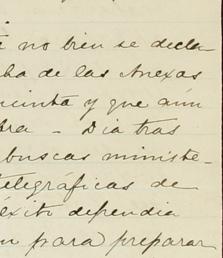 no bien se decla
de las Anexas
y que aún
- Dia tras
buscas ministe-
telegráficas de
éxito dependia
para preparar